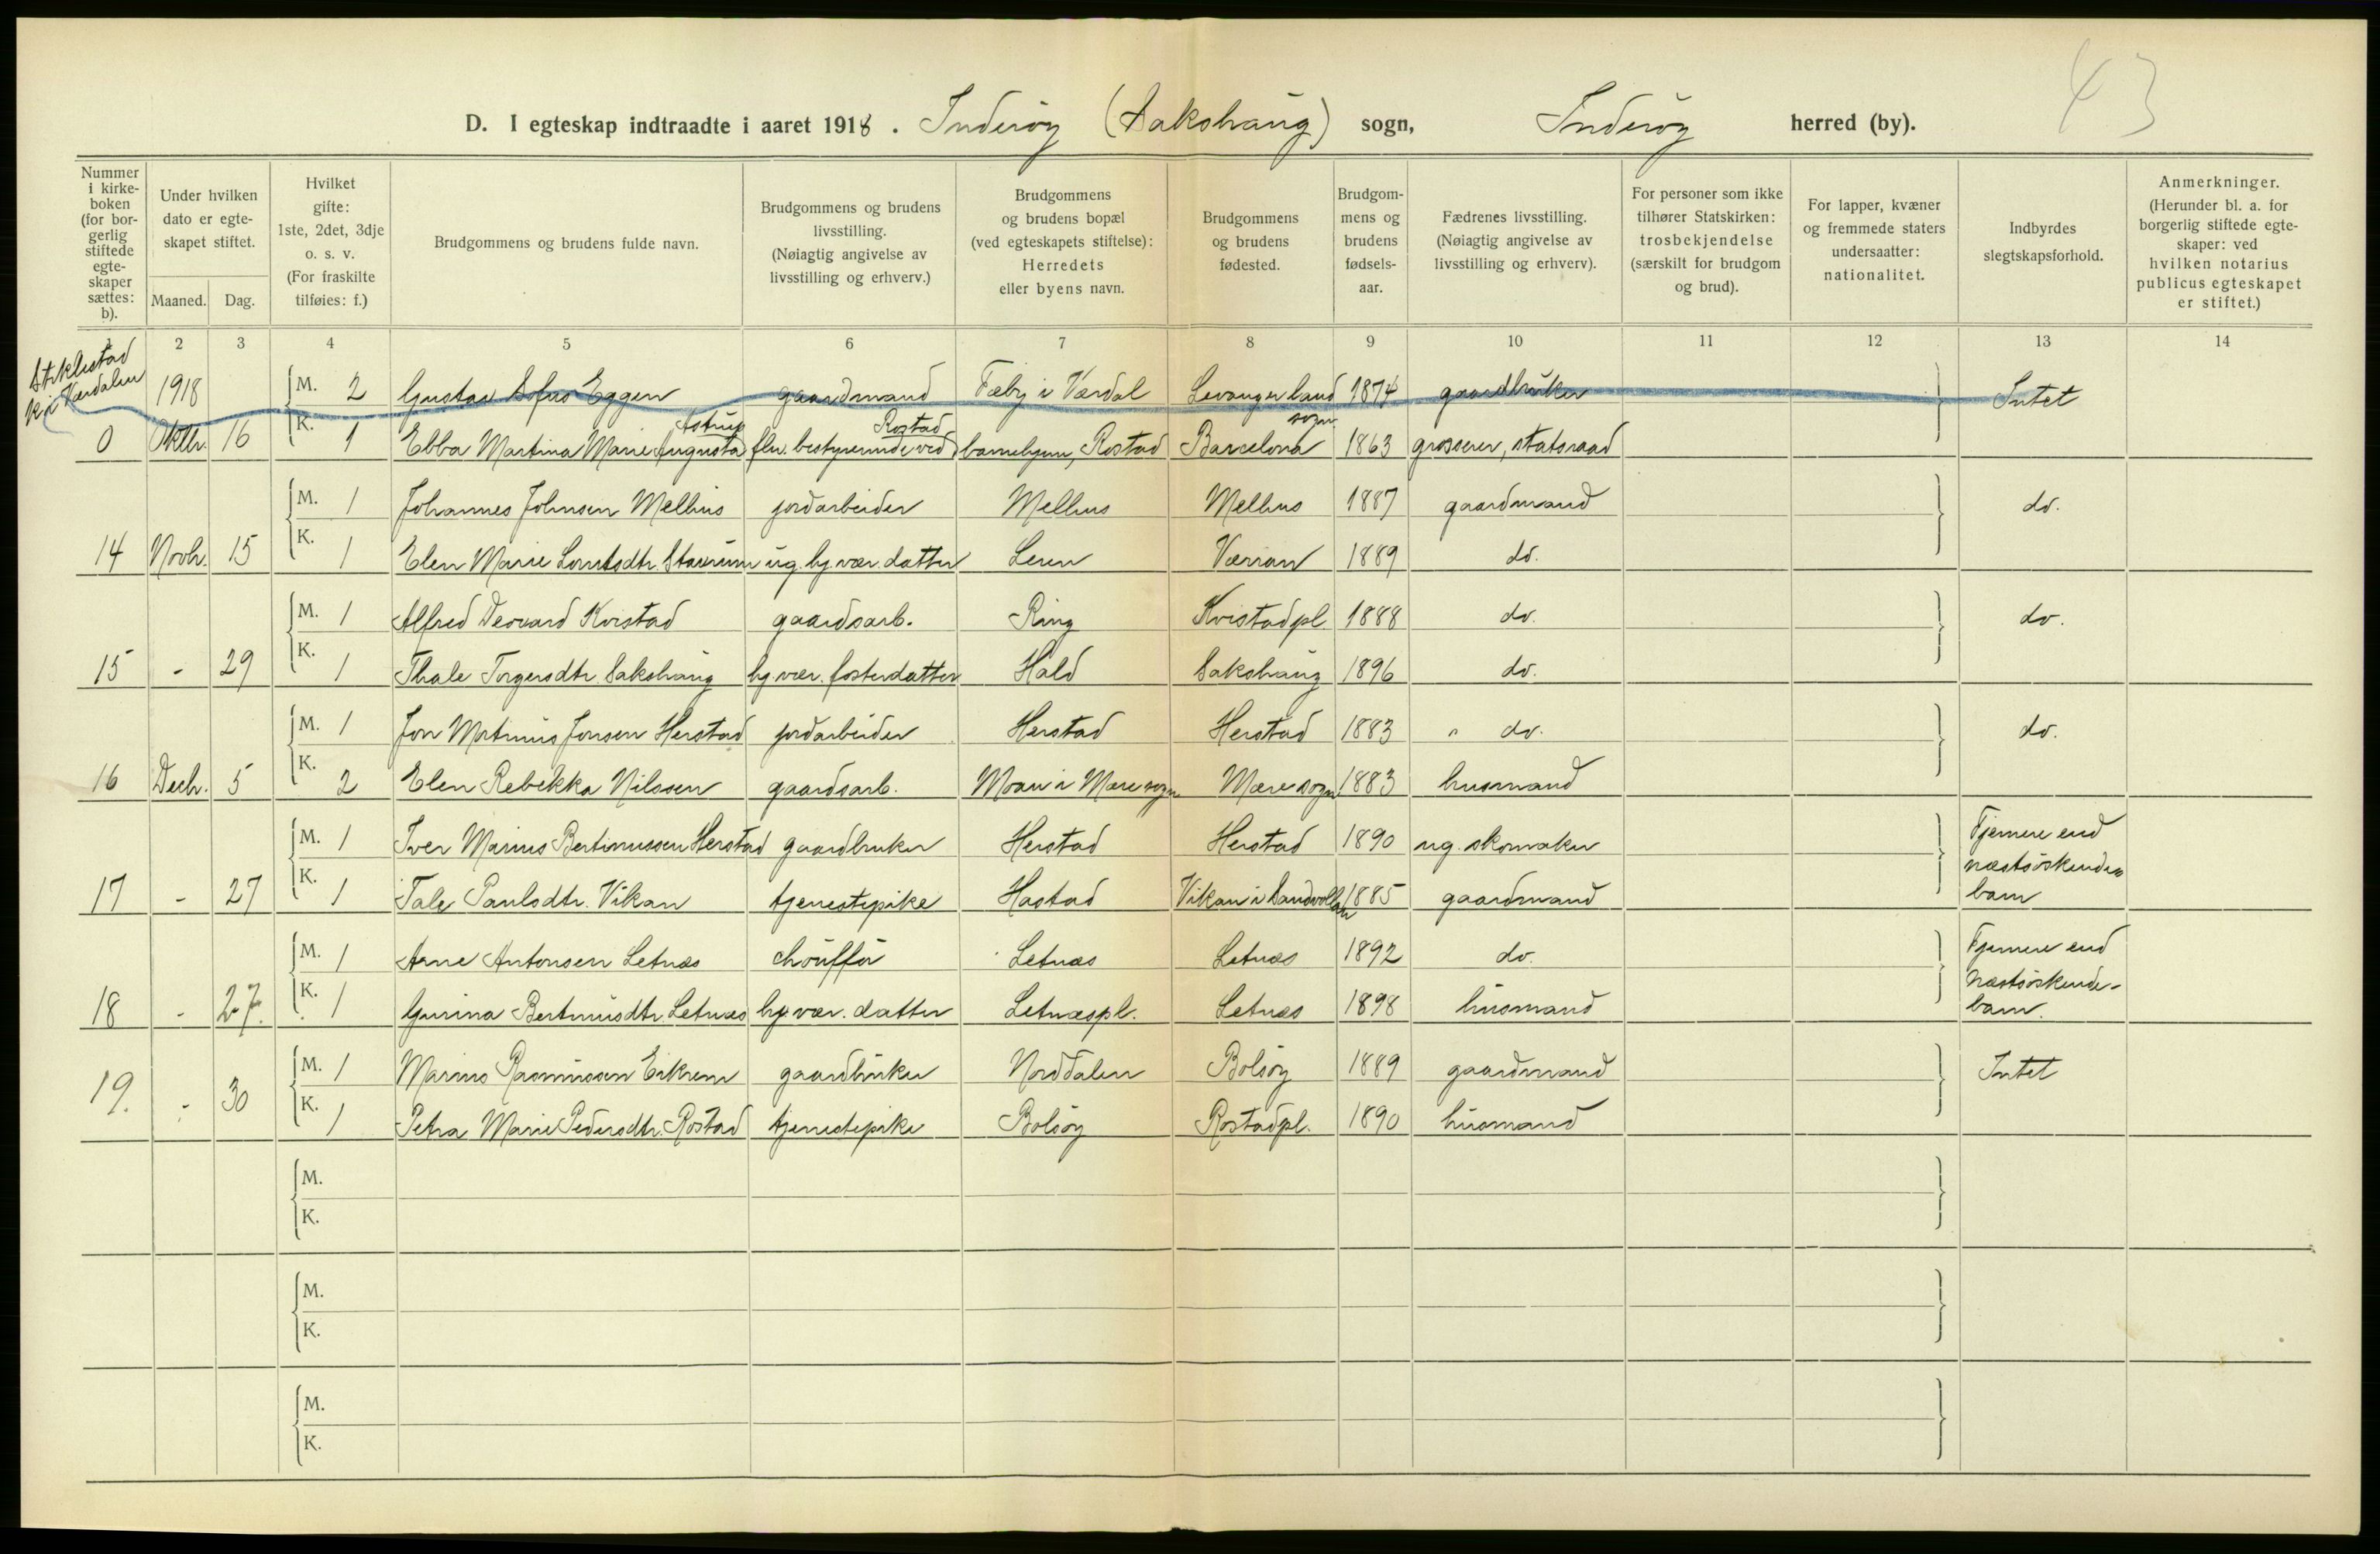 43
D. I egteskap indtraadte i aaret 1918. Inderöy (Sakshaug) sogn, Inderöy herred (by).
Nummer i kirke-boken (for bor-gerlig stiftede egte-skaper sættes: b).
Under hvilken dato er egte-skapet stiftet.
Maaned. Dag.
Hvilket gifte: 1ste, 2det, 3dje o. s. v. (For fraskilte tilføies: f.)
Brudgommens og brudens fulde navn.
Brudgommens og brudens livsstilling. (Nøiagtig angivelse av livsstilling og erhverv.)
Brudgommens og brudens bopæl (ved egteskapets stiftelse): Herredets eller byens navn.
Brudgommens og brudens fødested.
Brudgom-mens og brudens fødsels-aar.
Fædrenes livsstilling. (Nøiagtig angivelse av livsstilling og erhverv).
For personer som ikke tilhører Statskirken: trosbekjendelse (særskilt for brudgom og brud).
For lapper, kvæner og fremmede staters undersaatter: nationalitet.
Indbyrdes slegtskapsforhold.
Anmerkninger. (Herunder bl. a. for borgerlig stiftede egte-skaper: ved hvilken notarius publicus egteskapet er stiftet.)
1 2 3 4 5 6 7 8 9 10 11 12 13 14
Stiklestad
k. i Værdalen
1918 M. 2 Gustav Sofus Eggen gaardmand Fæby i Værdal Levanger land sogn 1874 gaardbruker Intet
0 Oktbr. 16 K. 1 Ebba Martina Marie Augusta Astrup flv. bestyrerinde ved Rostad barnehjem, Rostad Barcelona 1863 grosserer, statsraad
M. 1 Johannes Johnsen Melhus jordarbeider Melhus Melhus 1887 gaardmand do.
14 Novbr. 15 K. 1 Elen Marie Lorntsdtr. ug. hj. vær. datter Leren Værran 1889 do.
M. 1 Alfred Deovard Kvistad gaardsarb. Ring Kvistadpl. 1888 do. do.
15 - 29 K. 1 Thale Torgersdtr. Sakshaug hj. vær. fosterdatter Hald Sakshaug 1896 do.
M. 1 Jon Martinus Jonsen Herstad jordarbeider Herstad Herstad 1883 " do. do.
16 Decbr. 5 K. 2 Elen Rebekka Nilssen gaardsarb. Moan i Mære sogn Mære sogn 1883 husmand
M. 1 Iver Marius Bertinussen Herstad gaardbruker Herstad Herstad 1890 ug. skomaker Fjernere end næstsöskendes barn
17 - 27 K. 1 Tale Paulsdtr. Vikan tjenestepike Hastad Vikan i Sandvollan 1885 gaardmand
M. 1 Arne Antonsen Letnæs chöufför Letnæs Letnæs 1892 do. Fjernere end næstsöskende-barn.
18 - 27. K. 1 Gurina Bertinusdtr. Letnæs hj. vær. datter Letnæspl. Letnæs 1898 husmand
M. 1 Marius Rasmussen Eikrem gaardbruker Norddalen Bolsöy 1889 gaardmand Intet
19. - 30 K. 1 Petra Marie Pedersdtr. Rostad tjenestepike Bolsöy Rostadpl. 1890 husmand
M.
K.
M.
K.
M.
K.